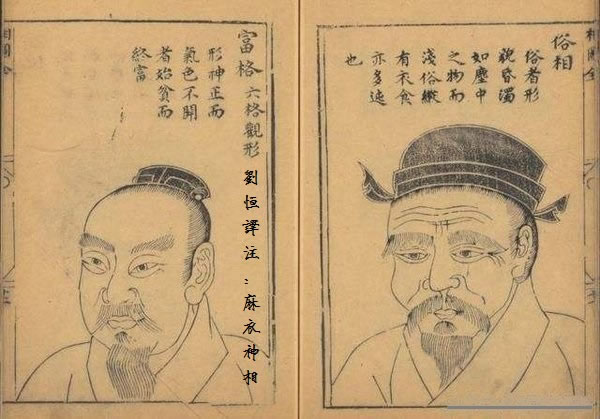 俗相
俗者形
貌昏濁
如塵中
之物而
淺俗縱
有衣食
亦多迍
也
富格
六格觀形
形神正而
氣色不開
者始貧而
終富
劉恒譯注：麻衣神相